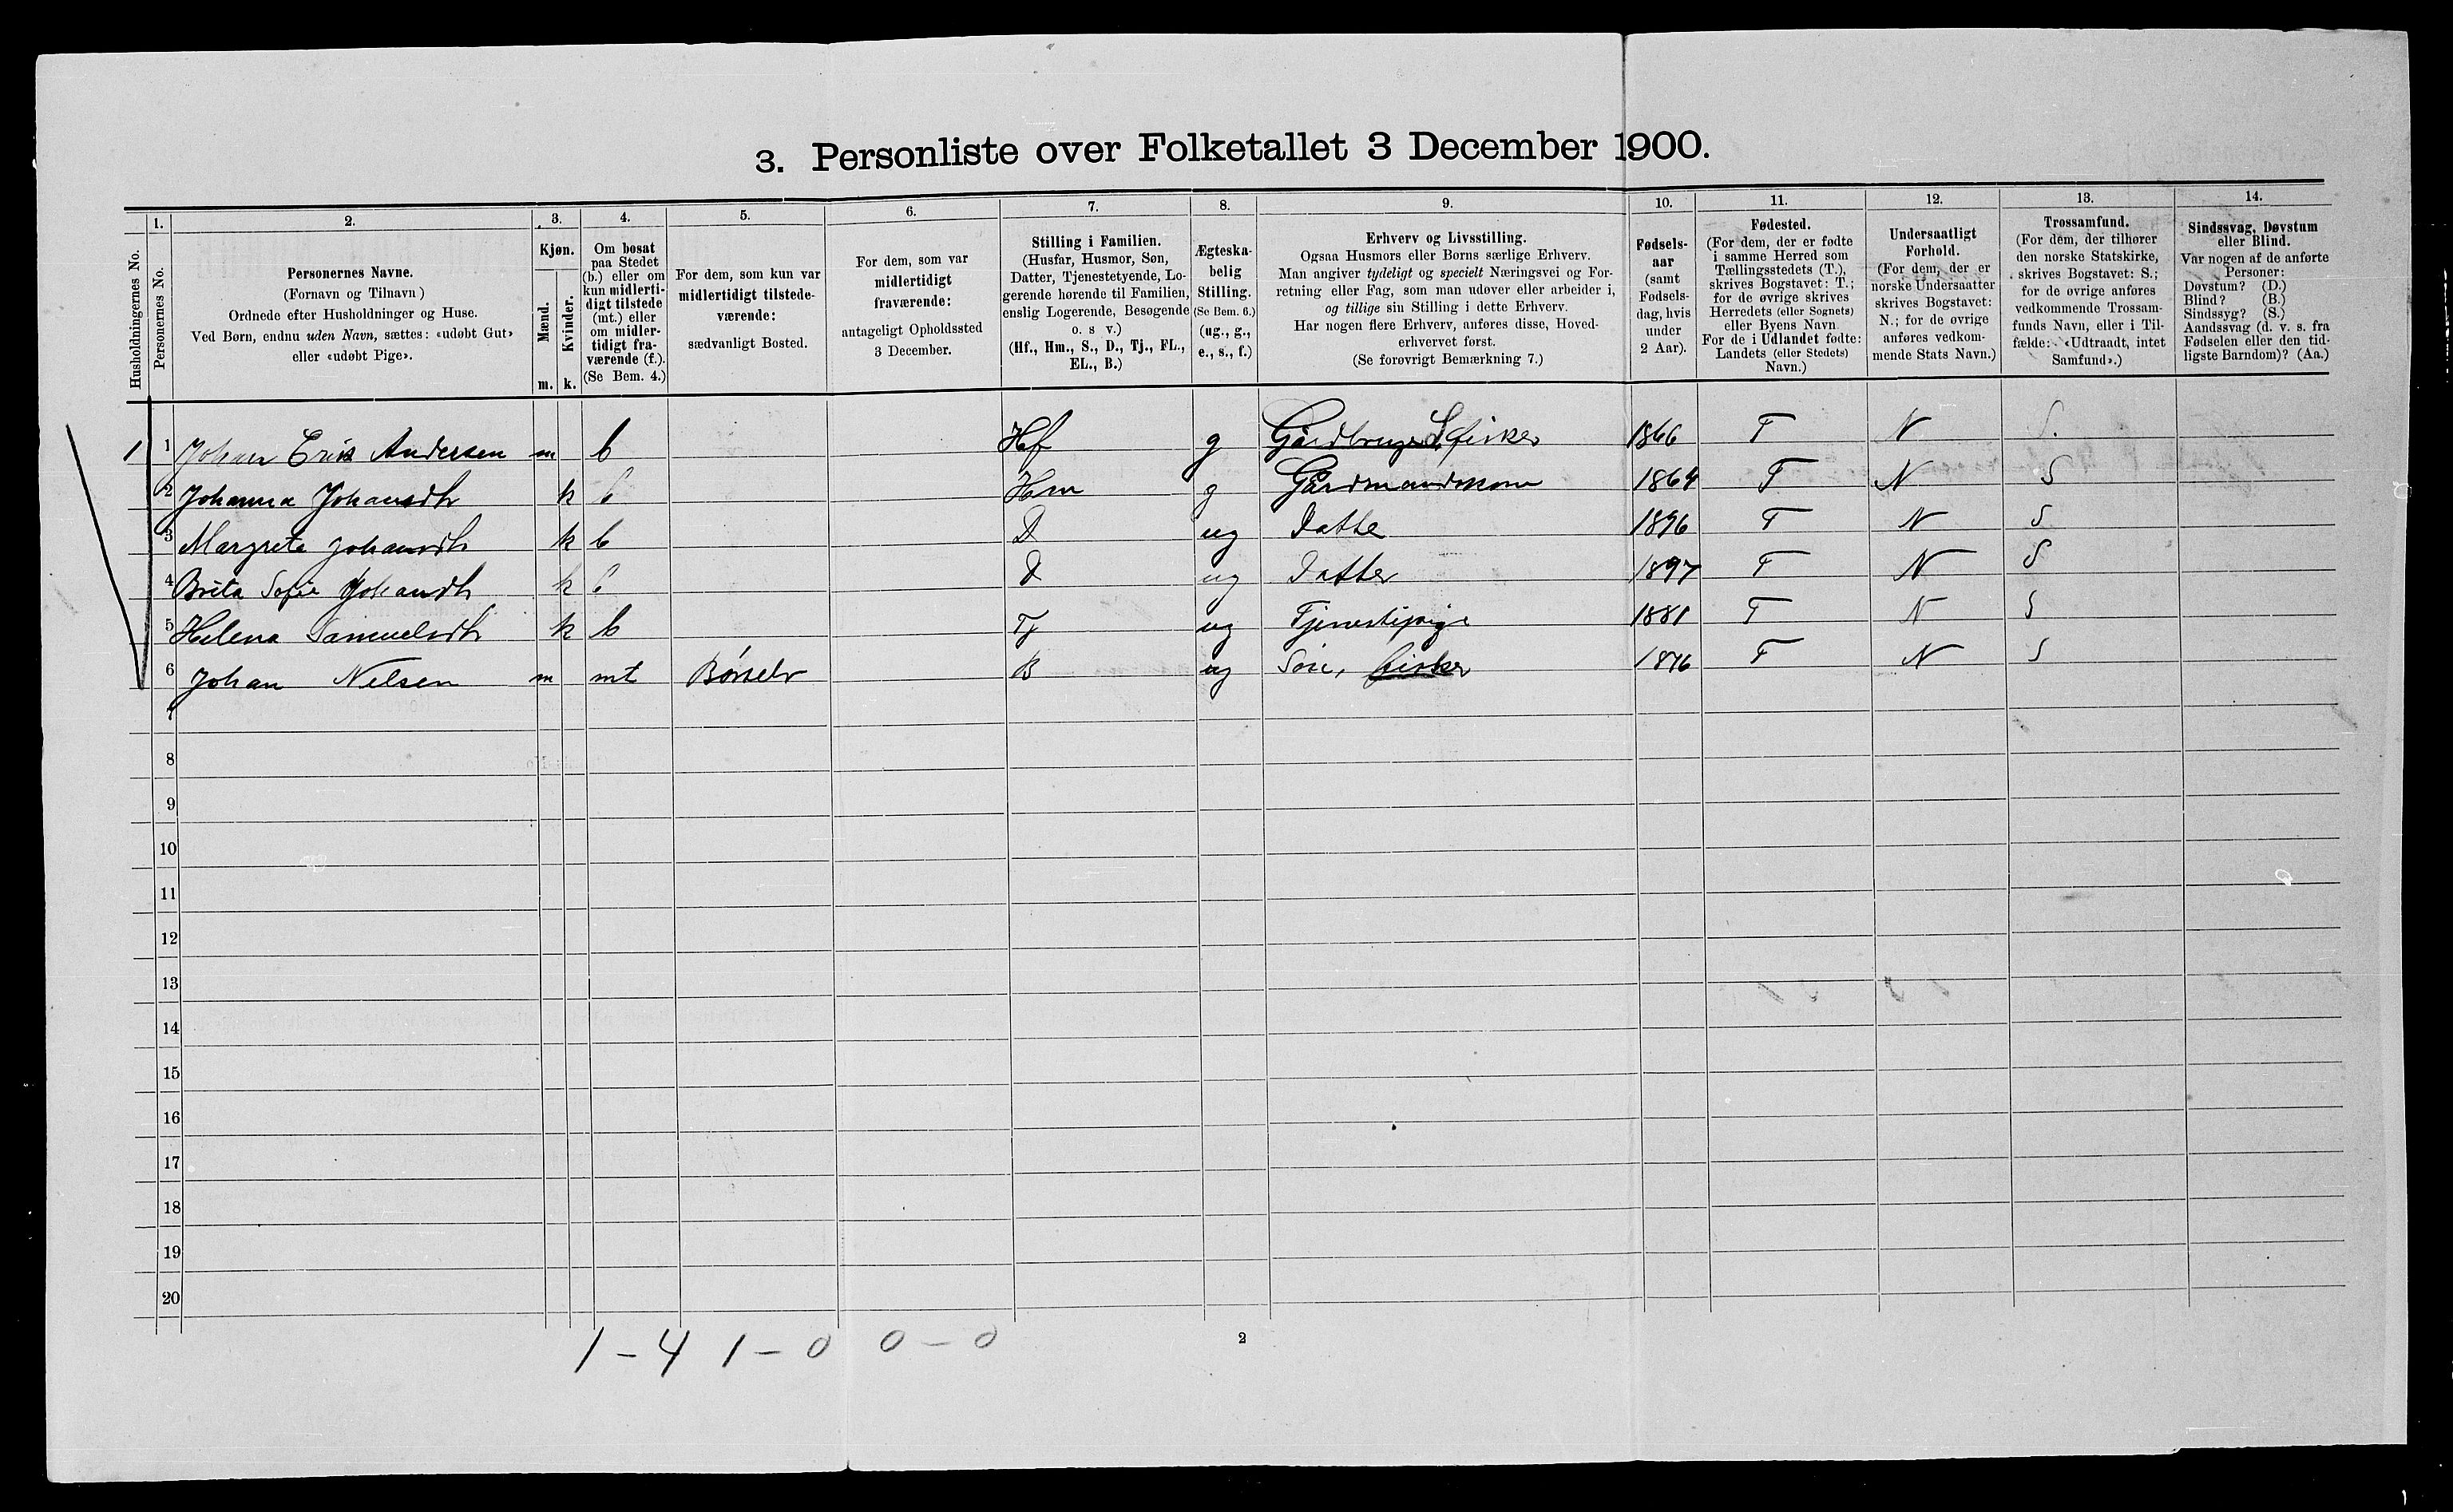 3. Personliste over Folketallet 3 December 1900.
1. 2. 3. 4. 5. 6. 7. 8. 9. 10. 11. 12. 13. 14.
Husholdningernes No.
Personernes No.
Personernes Navne.
(Fornavn og Tilnavn)
Ordnede efter Husholdninger og Huse.
Ved Børn, endnu uden Navn, sættes: «udøbt Gut»
eller «udøbt Pige».
Kjøn.
Mænd.
Kvinder.
m. k.
Om bosat
paa Stedet
(b.) eller om
kun midlerti-
digt tilstede
(mt.) eller
om midler-
tidigt fra-
værende (f.).
(Se Bem. 4.)
For dem, som kun var
midlertidigt tilstede-
værende:
sædvanligt Bosted.
For dem, som var
midlertidigt
fraværende:
antageligt Opholdssted
3 December.
Stilling i Familien.
(Husfar, Husmor, Søn,
Datter, Tjenestetyende, Lo-
gerende hørende til Familien,
enslig Logerende, Besøgende
o. s v.)
(Hf., Hm., S., D., Tj., FL.,
EL., B.)
Ægteska-
belig
Stilling.
(Se Bem. 6.)
(ug., g.,
e., s., f.)
Erhverv og Livsstilling.
Ogsaa Husmors eller Børns særlige Erhverv.
Man angiver tydeligt og specielt Næringsvei og For-
retning eller Fag, som man udøver eller arbeider i,
og tillige sin Stilling i dette Erhverv.
Har nogen flere Erhverv, anføres disse, Hoved-
erhvervet først.
(Se forøvrigt Bemærkning 7.)
Fødsels-
aar
(samt
Fødsels-
dag, hvis
under
2 Aar).
Fødested.
(For dem, der er fødte
i samme Herred som
Tællingsstedets (T.),
skrives Bogstavet: T.;
for de øvrige skrives
Herredets (eller Sognets)
eller Byens Navn
For de i Udlandet fødte:
Landets (eller Stedets)
Navn.)
Undersaatligt
Forhold.
(For dem, der er
norske Undersaatter
skrives Bogstavet:
N.; for de øvrige
anføres vedkom-
mende Stats Navn.)
Trossamfund.
(For dem, der tilhører
den norske Statskirke,
skrives Bogstavet: S.;
for de øvrige anføres
vedkommende Trossam-
funds Navn, eller i Til-
fælde: «Udtraadt, intet
Samfund».)
Sindssvag, Døvstum
eller Blind.
Var nogen af de anførte
Personer:
Døvstum? (D.)
Blind? (B.)
Sindssyg? (S.)
Aandssvag (d. v. s. fra
Fødselen eller den tid-
ligste Barndom)? (Aa.)
1 1 Johan Erik Andersen m b Hf g Gårdbruger fisker 1866 T N S.
2 Johanna Johansdtr k b Hm g Gårdmandskone 1864 T N S
3 Margreta Johansdtr k b D ug Datter 1896 T N S
4 Brita Sofie Johansdtr k b D ug Datter 1897 T N S
5 Helena Samuelsdtr k b Tj ug Tjenestepige 1881 T N S
6 Johan Nilsen m mt Børselv B ug fisker 1876 T N S
7
8
9
10
11
12
13
14
15
16
17
18
19
20
1 - 4 1 - 0 0 - 0
2